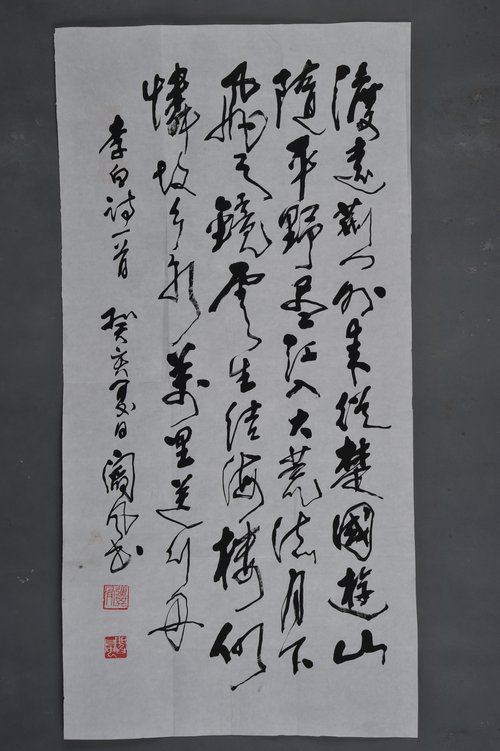 渡遠荆门外来從楚國遊山
隨平野尽江入大荒流月下
飛天鏡雲生结海樓仍
憐故乡水萬里送行舟
李白诗一首 癸亥夏日 风书